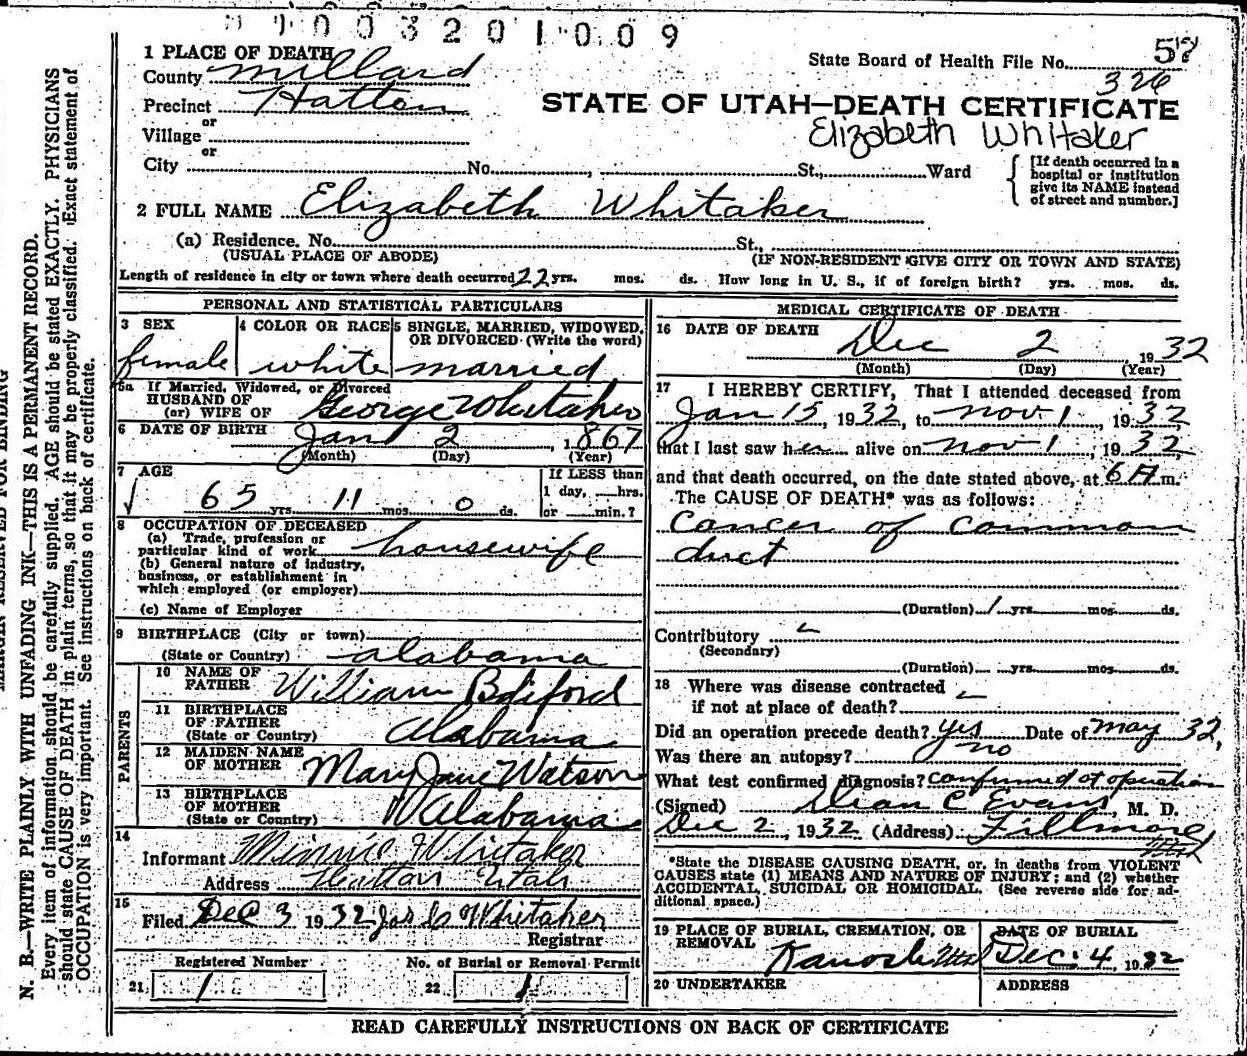 003201009
58
1 PLACE OF DEATH
State Board of Health File No. 326
County Millard
Precinct Hatton
STATE OF UTAH—DEATH CERTIFICATE
or
Village
Elizabeth Whitaker
or
City No. , St., Ward
[If death occurred in a hospital or institution give its NAME instead of street and number.]
2 FULL NAME Elizabeth Whitaker
(a) Residence. No. St.,
(USUAL PLACE OF ABODE) (IF NON-RESIDENT GIVE CITY OR TOWN AND STATE)
Length of residence in city or town where death occurred 22 yrs. mos. ds. How long in U. S., if of foreign birth? yrs. mos. ds.
PERSONAL AND STATISTICAL PARTICULARS
3 SEX female
4 COLOR OR RACE white
5 SINGLE, MARRIED, WIDOWED, OR DIVORCED (Write the word) married
5a If Married, Widowed, or Divorced
HUSBAND OF
(or) WIFE OF George Whitaker
6 DATE OF BIRTH Jan 2 1867
(Month) (Day) (Year)
7 AGE
65 yrs 11 mos 0 ds.
If LESS than
1 day, hrs.
or min.?
8 OCCUPATION OF DECEASED
(a) Trade, profession or
particular kind of work housewife
(b) General nature of industry,
business, or establishment in
which employed (or employer)
(c) Name of Employer
9 BIRTHPLACE (City or town)
(State or Country) Alabama
PARENTS
10 NAME OF
FATHER William
11 BIRTHPLACE
OF FATHER
(State or Country) Alabama
12 MAIDEN NAME
OF MOTHER Mary Jane Watson
13 BIRTHPLACE
OF MOTHER
(State or Country) Alabama
14
Informant Minnie Whitaker
Address Hatton Utah
15
Filed Dec 3 1932 Whitaker
Registrar
Registered Number No. of Burial or Removal Permit
21 1 22 1
MEDICAL CERTIFICATE OF DEATH
16 DATE OF DEATH
Dec 2, 1932
(Month) (Day) (Year)
17 I HEREBY CERTIFY, That I attended deceased from
Jan 15, 1932, to Nov 1, 1932
that I last saw her alive on Nov 1, 1932,
and that death occurred, on the date stated above, at 6 A m.
The CAUSE OF DEATH* was as follows:
Cancer of common
duct
(Duration) 1 yrs. mos. ds.
Contributory
(Secondary)
(Duration) yrs. mos. ds.
18 Where was disease contracted
if not at place of death?
Did an operation precede death? yes Date of May 32,
Was there an autopsy? no
What test confirmed diagnosis? confirmed at operation
(Signed) Dean C Evans, M. D.
Dec 2, 1932 (Address) Fillmore, Utah
*State the DISEASE CAUSING DEATH, or, in deaths from VIOLENT
CAUSES state (1) MEANS AND NATURE OF INJURY; and (2) whether
ACCIDENTAL, SUICIDAL OR HOMICIDAL. (See reverse side for ad-
ditional space.)
19 PLACE OF BURIAL, CREMATION, OR
REMOVAL Kanosh Utah
DATE OF BURIAL
Dec. 4, 1932
20 UNDERTAKER ADDRESS
READ CAREFULLY INSTRUCTIONS ON BACK OF CERTIFICATE
MARGIN RESERVED FOR BINDING
N. B.—WRITE PLAINLY WITH UNFADING INK—THIS IS A PERMANENT RECORD.
Every item of information should be carefully supplied. AGE should be stated EXACTLY. PHYSICIANS
should state CAUSE OF DEATH in plain terms, so that it may be properly classified. Exact statement of
OCCUPATION is very important. See instructions on back of certificate.